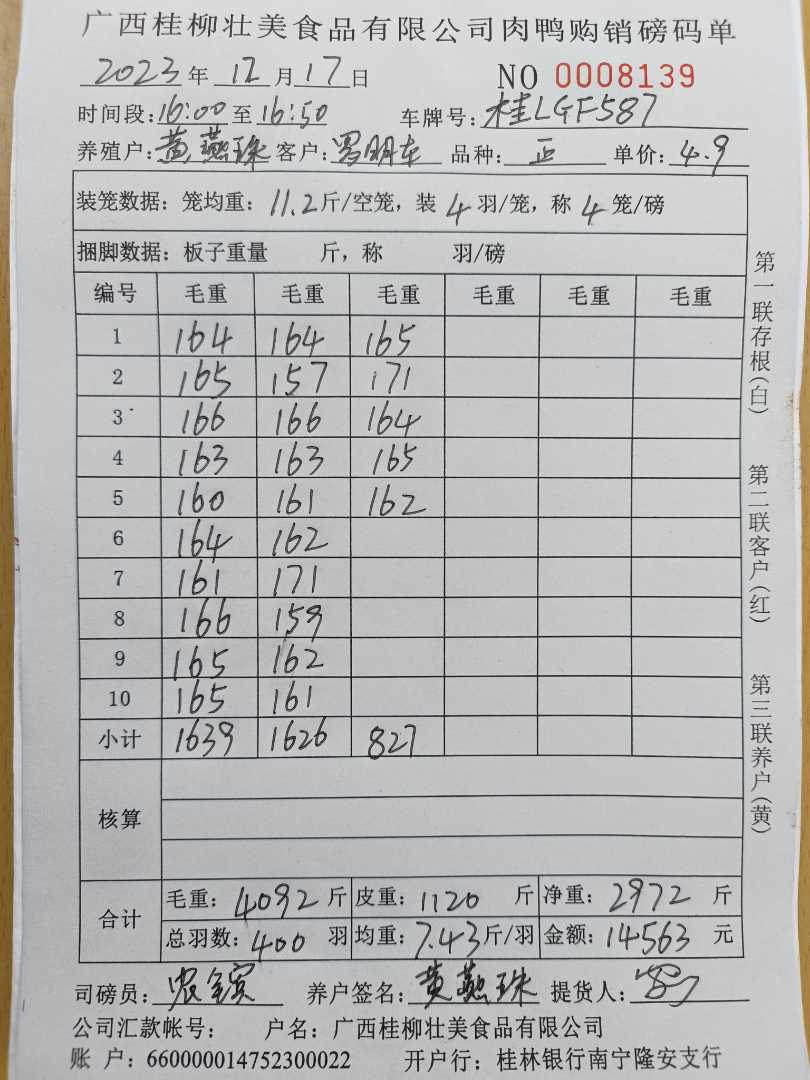 广西桂柳壮美食品有限公司肉鸭购销磅码单
2023年 12月17日 NO 0008139
时间段:16:00至16:50 车牌号:桂LGF587
养殖户:黄燕珠 客户:罗明车 品种:正 单价:4.9
装笼数据:笼均重:11.2斤/空笼,装4羽/笼,称4笼/磅
捆脚数据:板子重量 斤,称 羽/磅
编号 毛重 毛重 毛重 毛重 毛重 毛重
1 164 164 165
2 165 157 171
3 166 166 164
4 163 163 165
5 160 161 162
6 164 162
7 161 171
8 166 159
9 165 162
10 165 161
小计 1639 1626 827
核算
合计 毛重:4092斤 皮重:1120斤 净重:2972斤
总羽数:400羽 均重:7.43斤/羽 金额:14563元
司磅员:农 养户签名:黄燕珠 提货人:
公司汇款帐号: 户名:广西桂柳壮美食品有限公司
账 户:660000014752300022 开户行:桂林银行南宁隆安支行
第一联存根(白)
第二联客户(红)
第三联养户(黄)